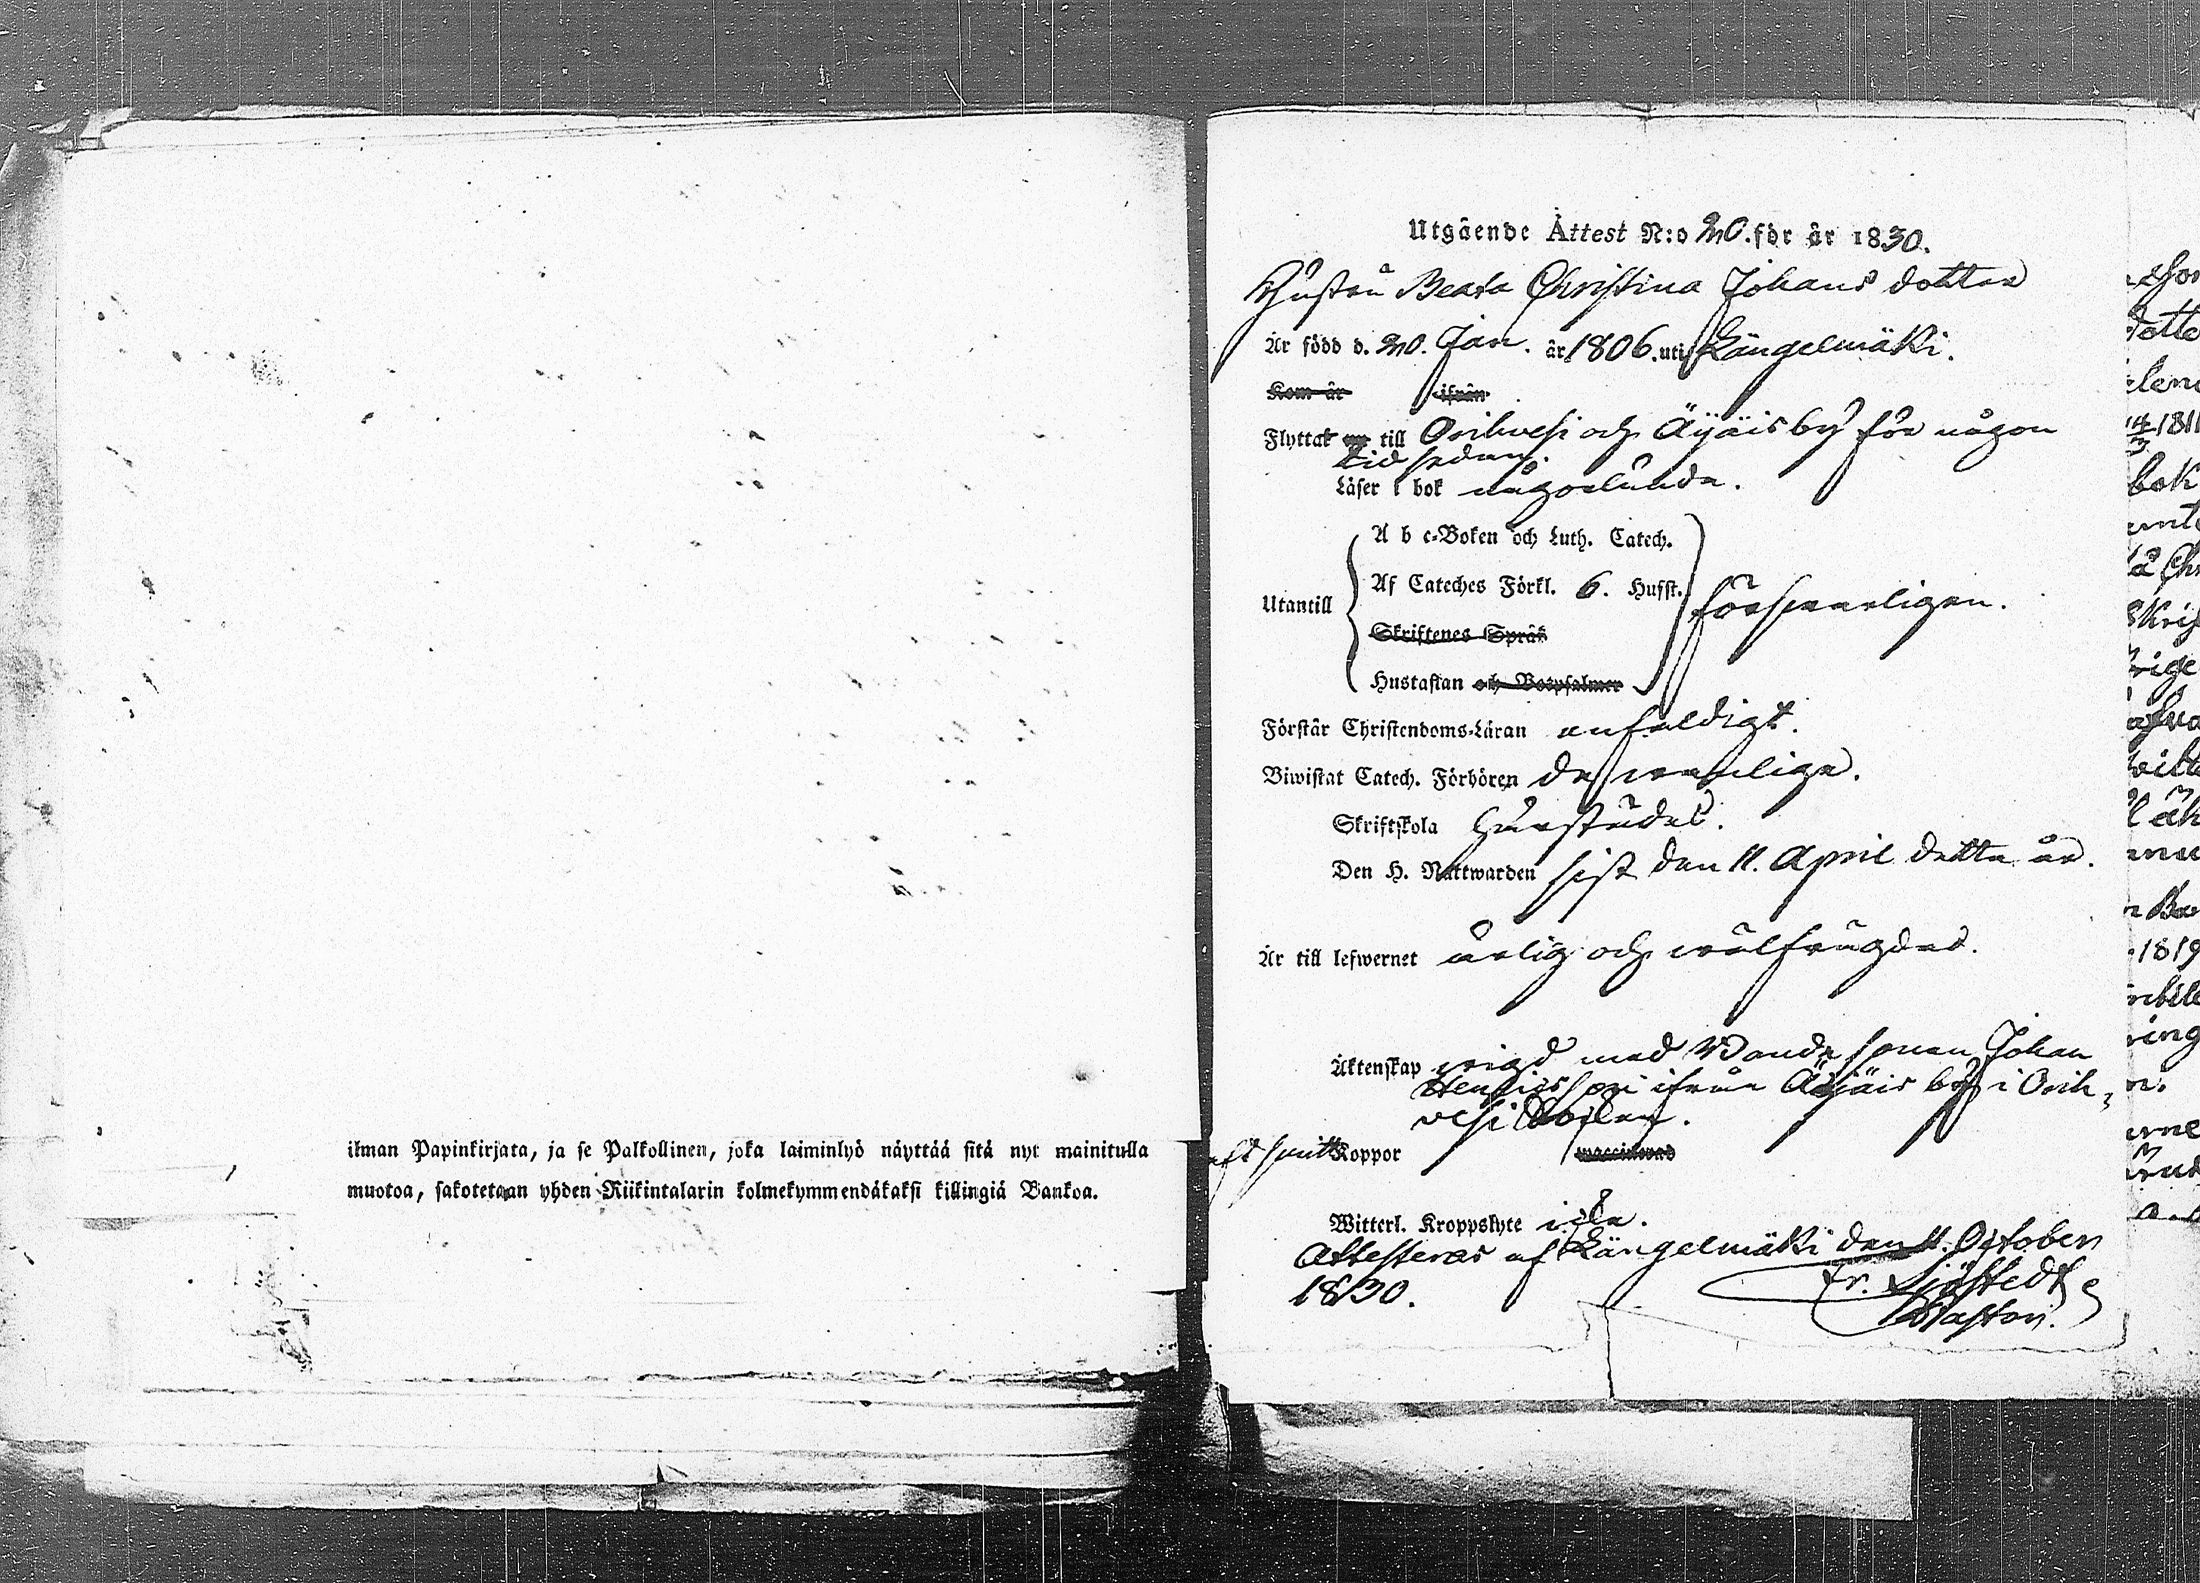 ilman Papinkirjata, ja se Palkollinen, joka laiminlyö näyttää sitä nyt mainitulla
muotoa, sakotetaan yhden Riikintalarin kolmekymmendäkaksi killingiä Bankoa.
Utgående Attest N:o 20. för år 1830.
Hustrun Beata Christina Johans dotter
Är född d. 20. Jan. år 1806. uti Längelmäki.
Kom år ifrån
Flyttat till Orihvesi och Äyäis by för någon
tid sedan.
Läser i bok någorlunda.
A b c-Boken och Luth. Catech.
Af Cateches Förkl. 6. Hufst.
Utantill försvarligen.
Skriftenes Språk
Hustaflan och Botpsalmer
Förstår Christendoms-Läran enfaldigt.
Biwistat Catech. Förhören de wanliga.
Skriftskola härstädes.
Den H. Nattwarden sist den 11. April detta år.
Är till lefwernet ärlig och wälfrägdad.
Äktenskap wigd med Bondesonen Johan
Henricsson ifrån Äyäis by i Orih,
vesi
haft smitt Koppor vaccinerad
Witterl. Kroppslyte icke.
Attesteras af Längelmäki den 11. October
1830. Fr. Sjöstedt
Pastor.